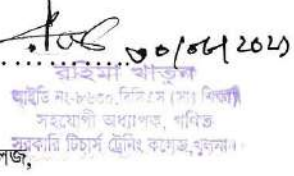 রহিমা খাতুন
আইডি নং-৮৬৩০, বিসিএস (সাঃ শিক্ষা)
সহযোগী অধ্যাপক, গণিত
সরকারি টিচার্স ট্রেনিং কলেজ, খুলনা।
লজ,